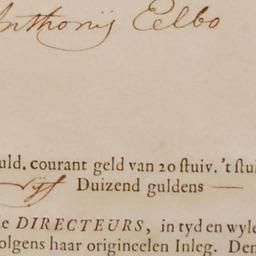 Anthonij Eelbo
uld. courant geld van 20 stuiv. 't stu
Vijf Duizend guldens —
e DIRECTEURS, in tyd en wyle
olgens haar origineelen Inleg. Den